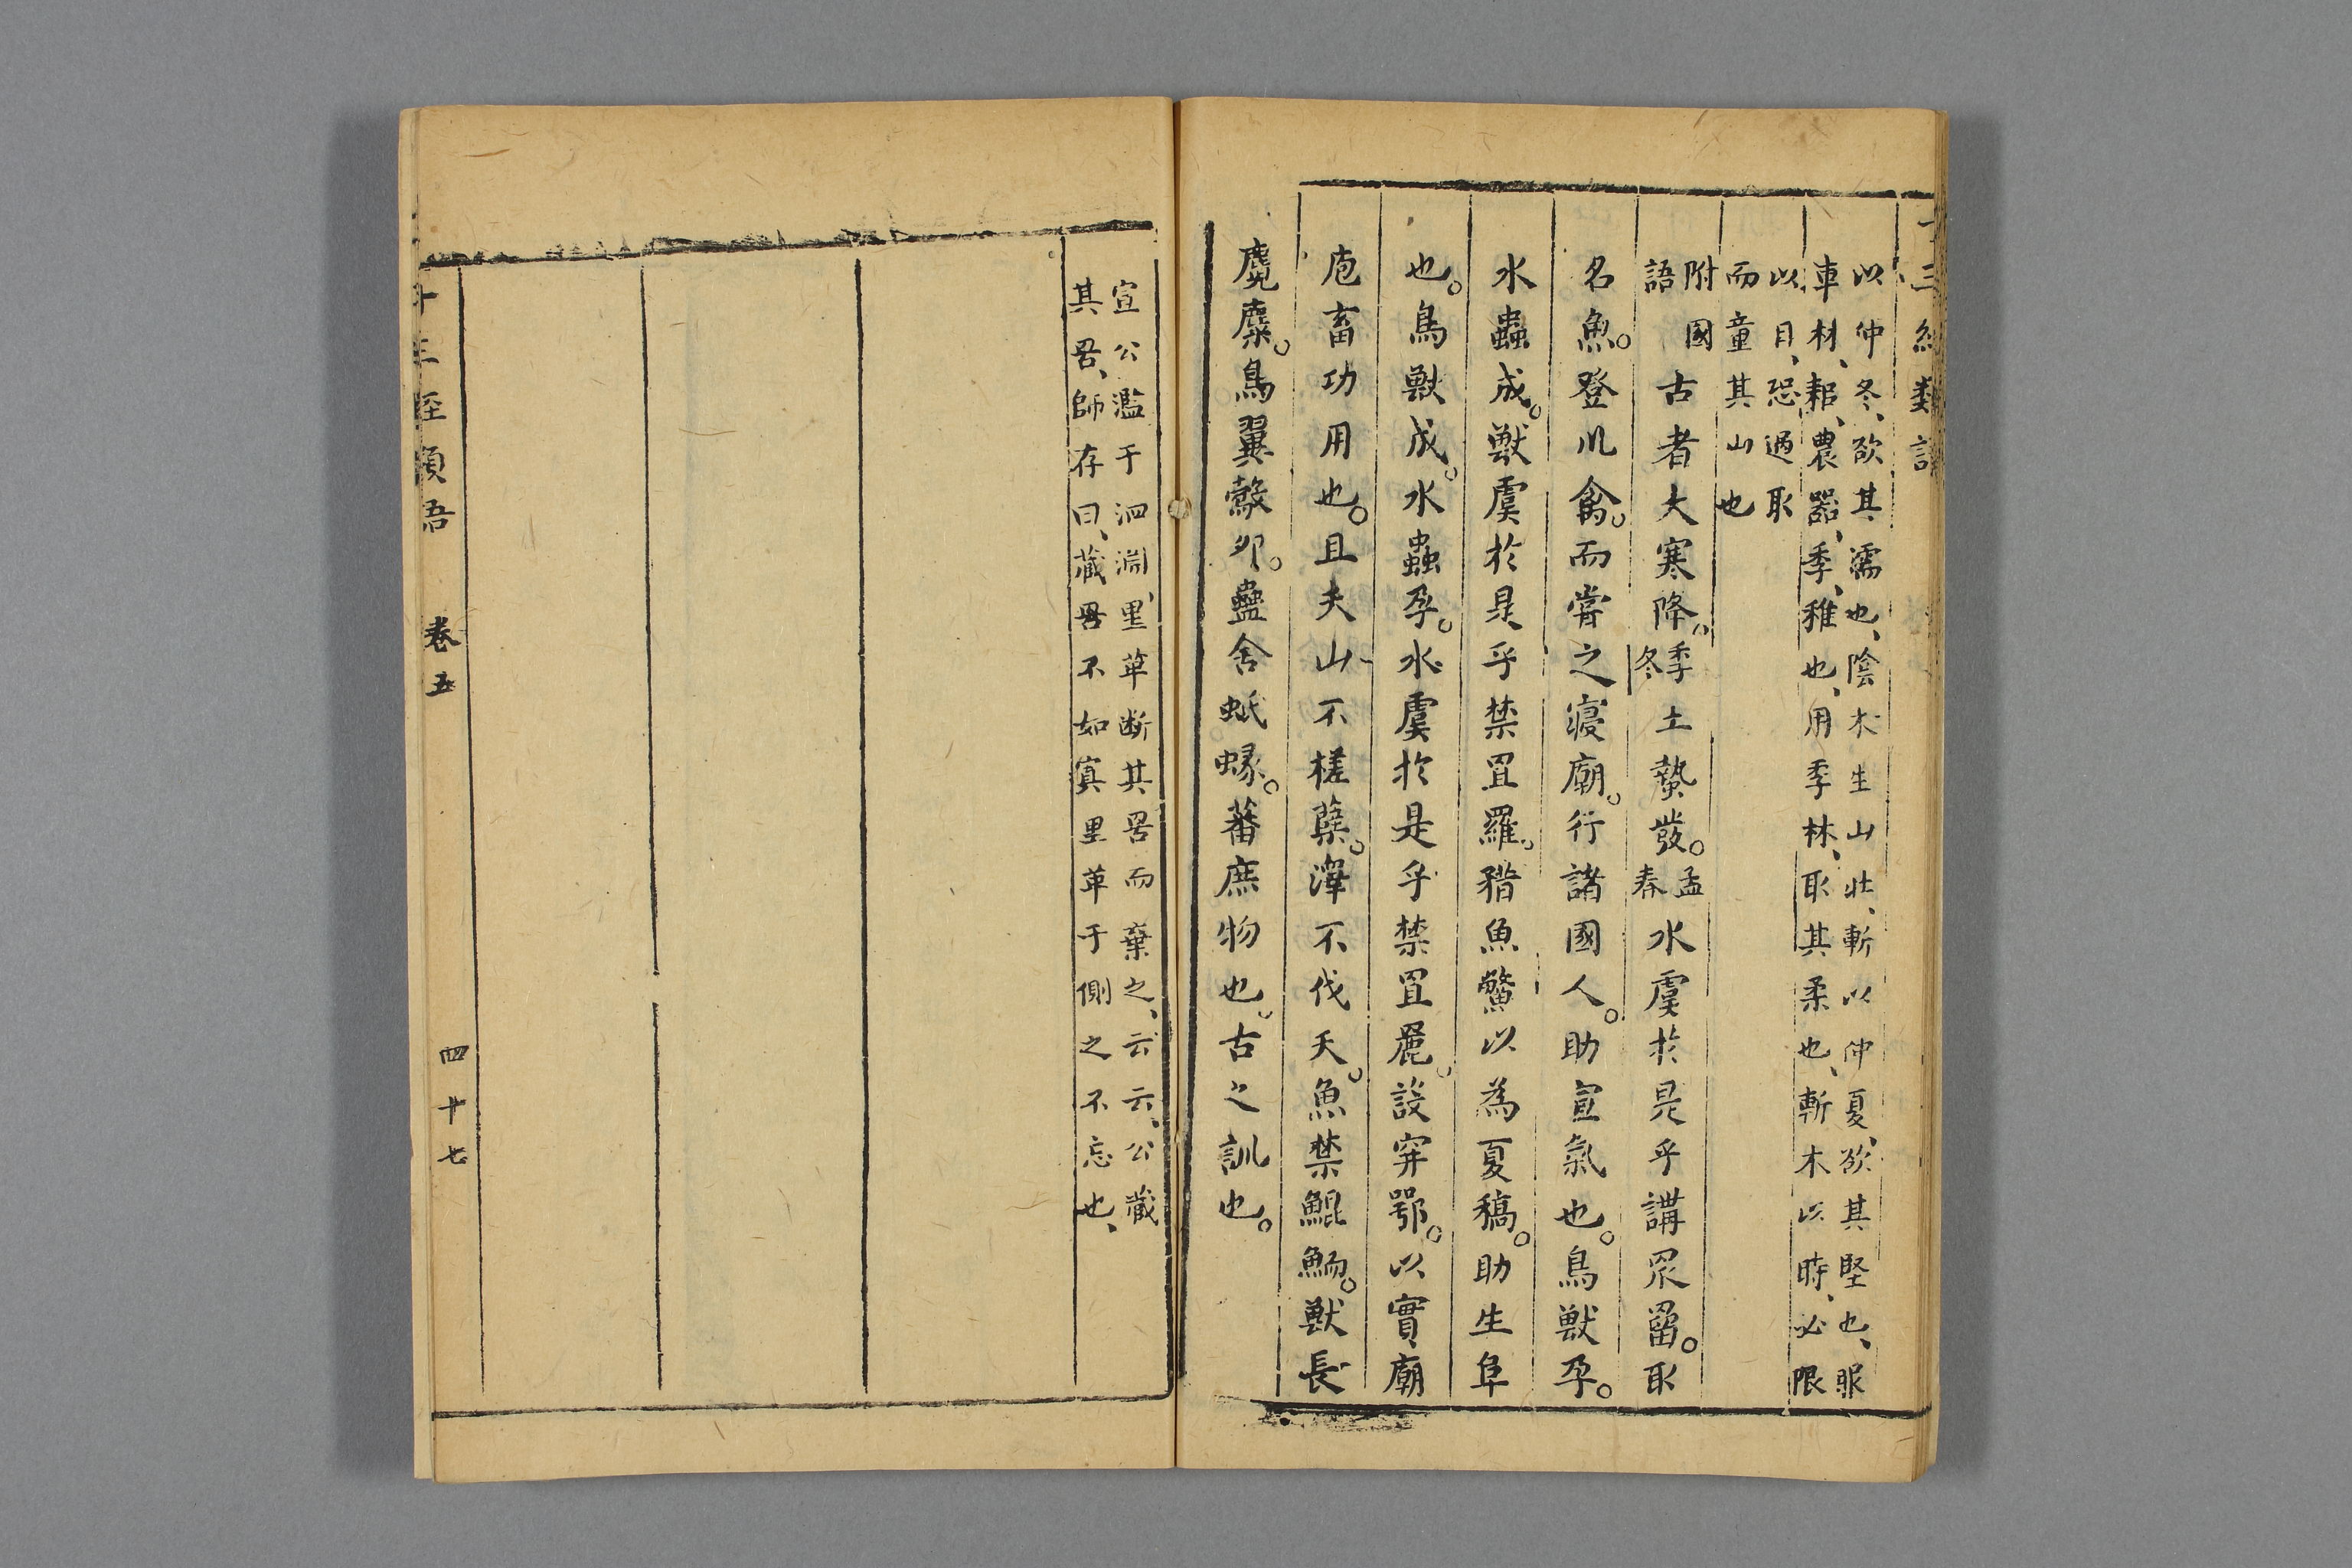 十三經類語
以仲冬、欲其濡也、陰木生山壯、斬以仲夏、欲其堅也、服
車材、耜、農器、季、稚也、用季林、取其柔也、斬木以時、必限
以日、恐過取
而童其山也
附國語 古者大寒降。季冬 土蟄發。孟春 水虞於是乎講罛罶。取
名魚。登川禽。而嘗之寢廟。行諸國人。助宣氣也。鳥獸孕。
水蟲成。獸虞於是乎禁罝羅。矠魚鱉以為夏稿。助生阜
也。鳥獸成。水蟲孕。水虞於是乎禁罝麗。設穽鄂。以實廟
庖畜功用也。且夫山不槎蘖。澤不伐夭。魚禁鯤鮞。獸長
麑麋。鳥翼鷇卵。蠱舍蚳蝝。蕃庶物也。古之訓也。
宣公濫于泗淵、里革断其罟而棄之、云云、公藏
其罟、師存曰、藏罟不如寘里革于側之不忘也、
十三經類語 卷五 四十七